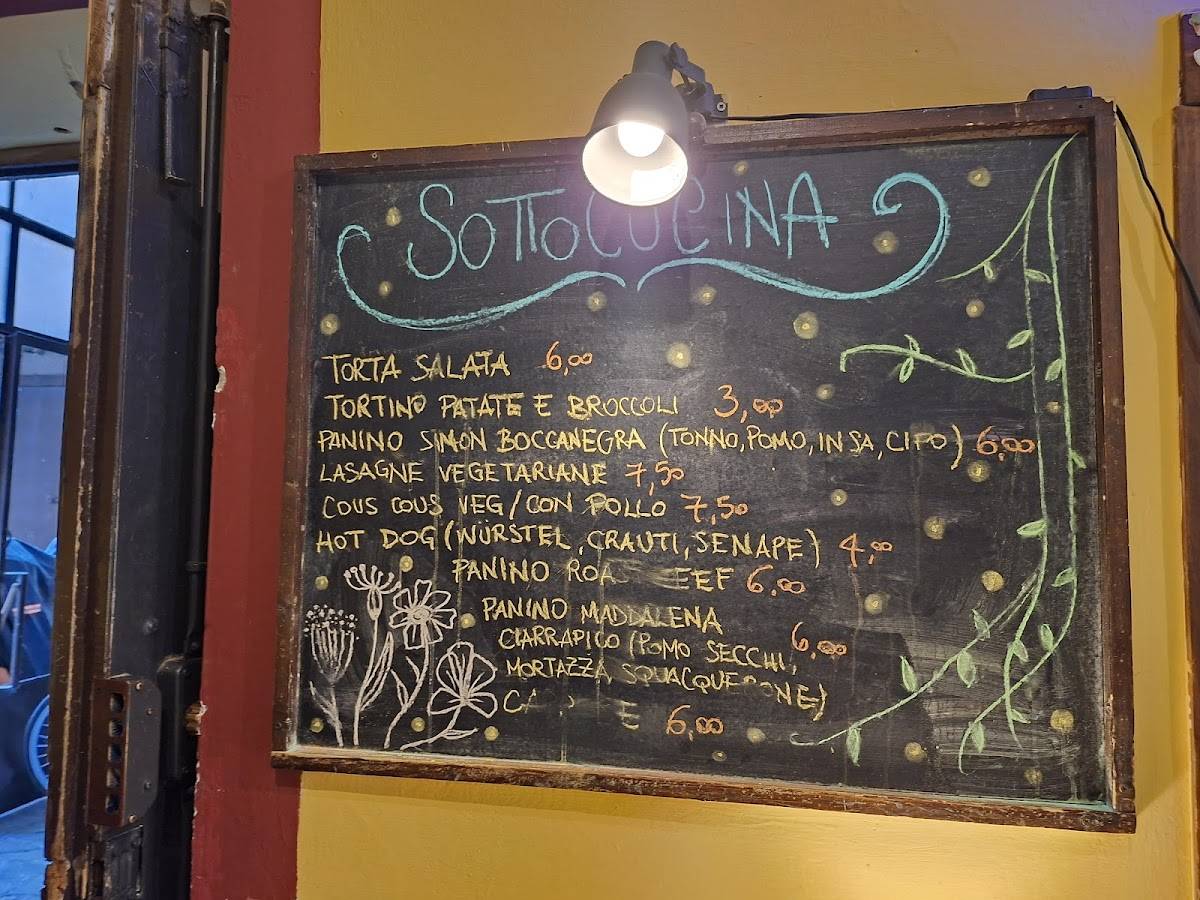 SOTTOCUCINA
TORTA SALATA 6,00
TORTINO PATATE E BROCCOLI 3,00
PANINO SIMON BOCCANEGRA (TONNO, POMO, INSA, CIPO) 6,00
LASAGNE VEGETARIANE 7,50
COUS COUS VEG/CON POLLO 7,50
HOT DOG (WÜRSTEL, CRAUTI, SENAPE) 4,00
PANINO 6,00
PANINO MADDALENA
CIARRAPICO (POMO SECCHI, 6,00
MORTAZZA, SQUACQUERONE)
6,00